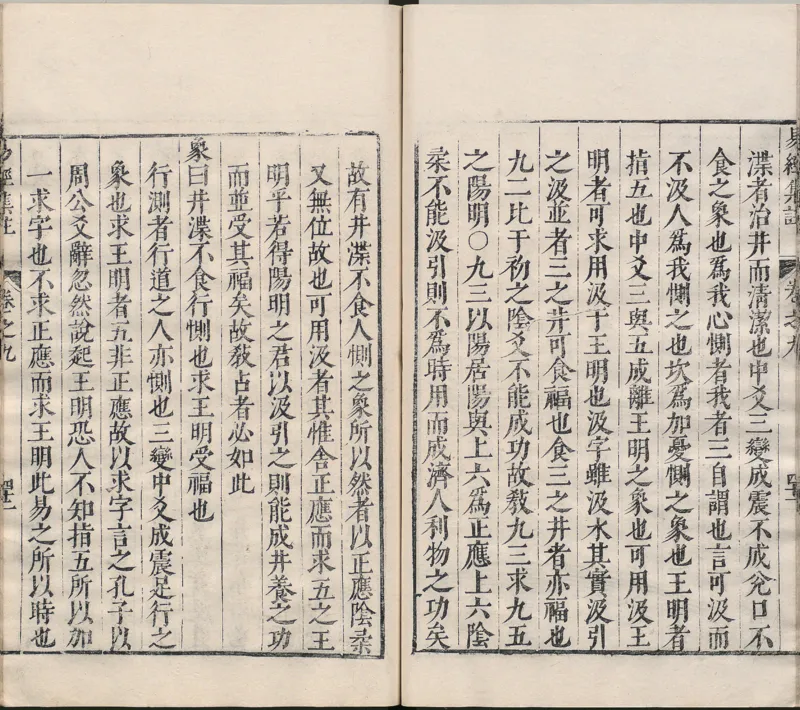 易經集註
卷之九
渫者治井而清潔也中爻三變成震不成兌口不
食之象也爲我心惻者我者三自謂也言可汲而
不汲人爲我惻之也坎爲加憂惻之象也王明者
指五也中爻三與五成離王明之象也可用汲王
明者可求用汲于王明也汲字雖汲水其實汲引
之汲並者三之井可食福也食三之井者亦福也
九二比于初之陰爻不能成功故敎九三求九五
之陽明○九三以陽居陽與上六爲正應上六陰
柔不能汲引則不爲時用而成濟人利物之功矣
故有井渫不食人惻之象所以然者以正應陰柔
又無位故也可用汲者其惟舍正應而求五之王
明乎若得陽明之君以汲引之則能成井養之功
而並受其福矣故敎占者必如此
象曰井渫不食行惻也求王明受福也
行測者行道之人亦惻也三變中爻成震足行之
象也求王明者五非正應故以求字言之孔子以
周公爻辭忽然說起王明恐人不知指五所以加
一求字也不求正應而求王明此易之所以時也
易經集註
卷之九